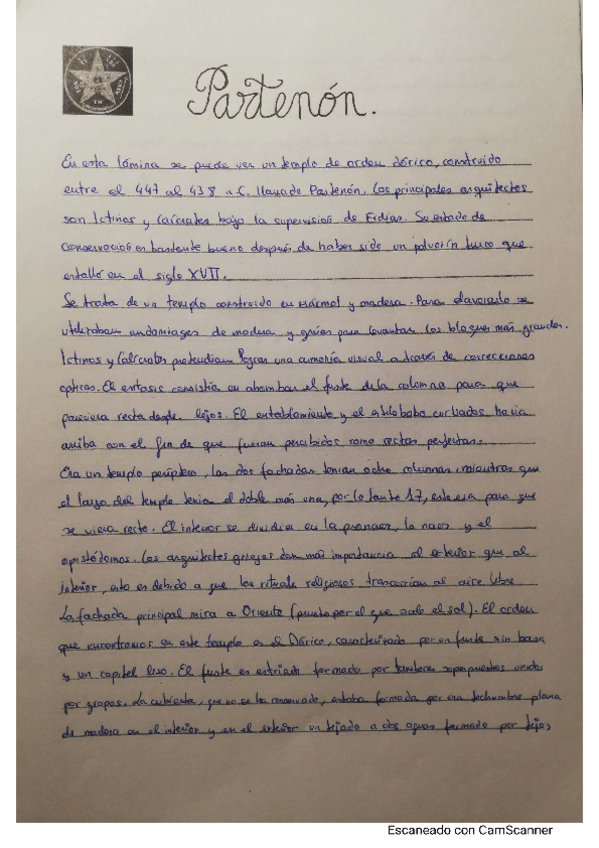 Partenón.
En esta lámina se puede ver un templo de orden dórico, construido
entre el 447 al 438 a.C. llamado Partenón. Los principales arquitectos
son Ictinos y Calícrates bajo la supervisión de Fidias. Su estado de
conservación es bastante bueno después de haber sido un polvorín turco que
estalló en el siglo XVII.
Se trata de un templo construido en mármol y madera. Para elavorarlo se
utilizaban andamiages de madera y grúas para levantar los bloques más grandes.
Ictinos y Calícrates pretendían lograr una armonía visual a través de correcciones
opticas. El entasis consistía en abombar el fuste de la columna para que
pareciera recta desde lejos. El entablamiento y el estilobato curvados hacia
arriba con el fin de que fueran percibidos como rectas perfectas.
Era un templo períptero, las dos fachadas tenían ocho columnas, mientras que
el largo del templo tenía el doble más una, por lo tanto 17, esto era para que
se viera recto. El interior se dividía en la pronaos, la naos y el
opistódomos. Los arquitectos griegos dan más importancia al exterior que al
interior, esto es debido a que los rituales religiosos trascurrían al aire libre
La fachada principal mira a Oriente (punto por el que sale el sol). El orden
que encontramos en este templo es el Dórico, caracterizado por un fuste sin basa
y un capitel liso. El fuste es estriado formado por tambores superpuestos unidos
por grapas. La cubierta, que no se ha conservado, estaba formada por una techumbre plana
de madera en el interior y en el exterior un tejado a dos aguas formado por tejas
Escaneado con CamScanner